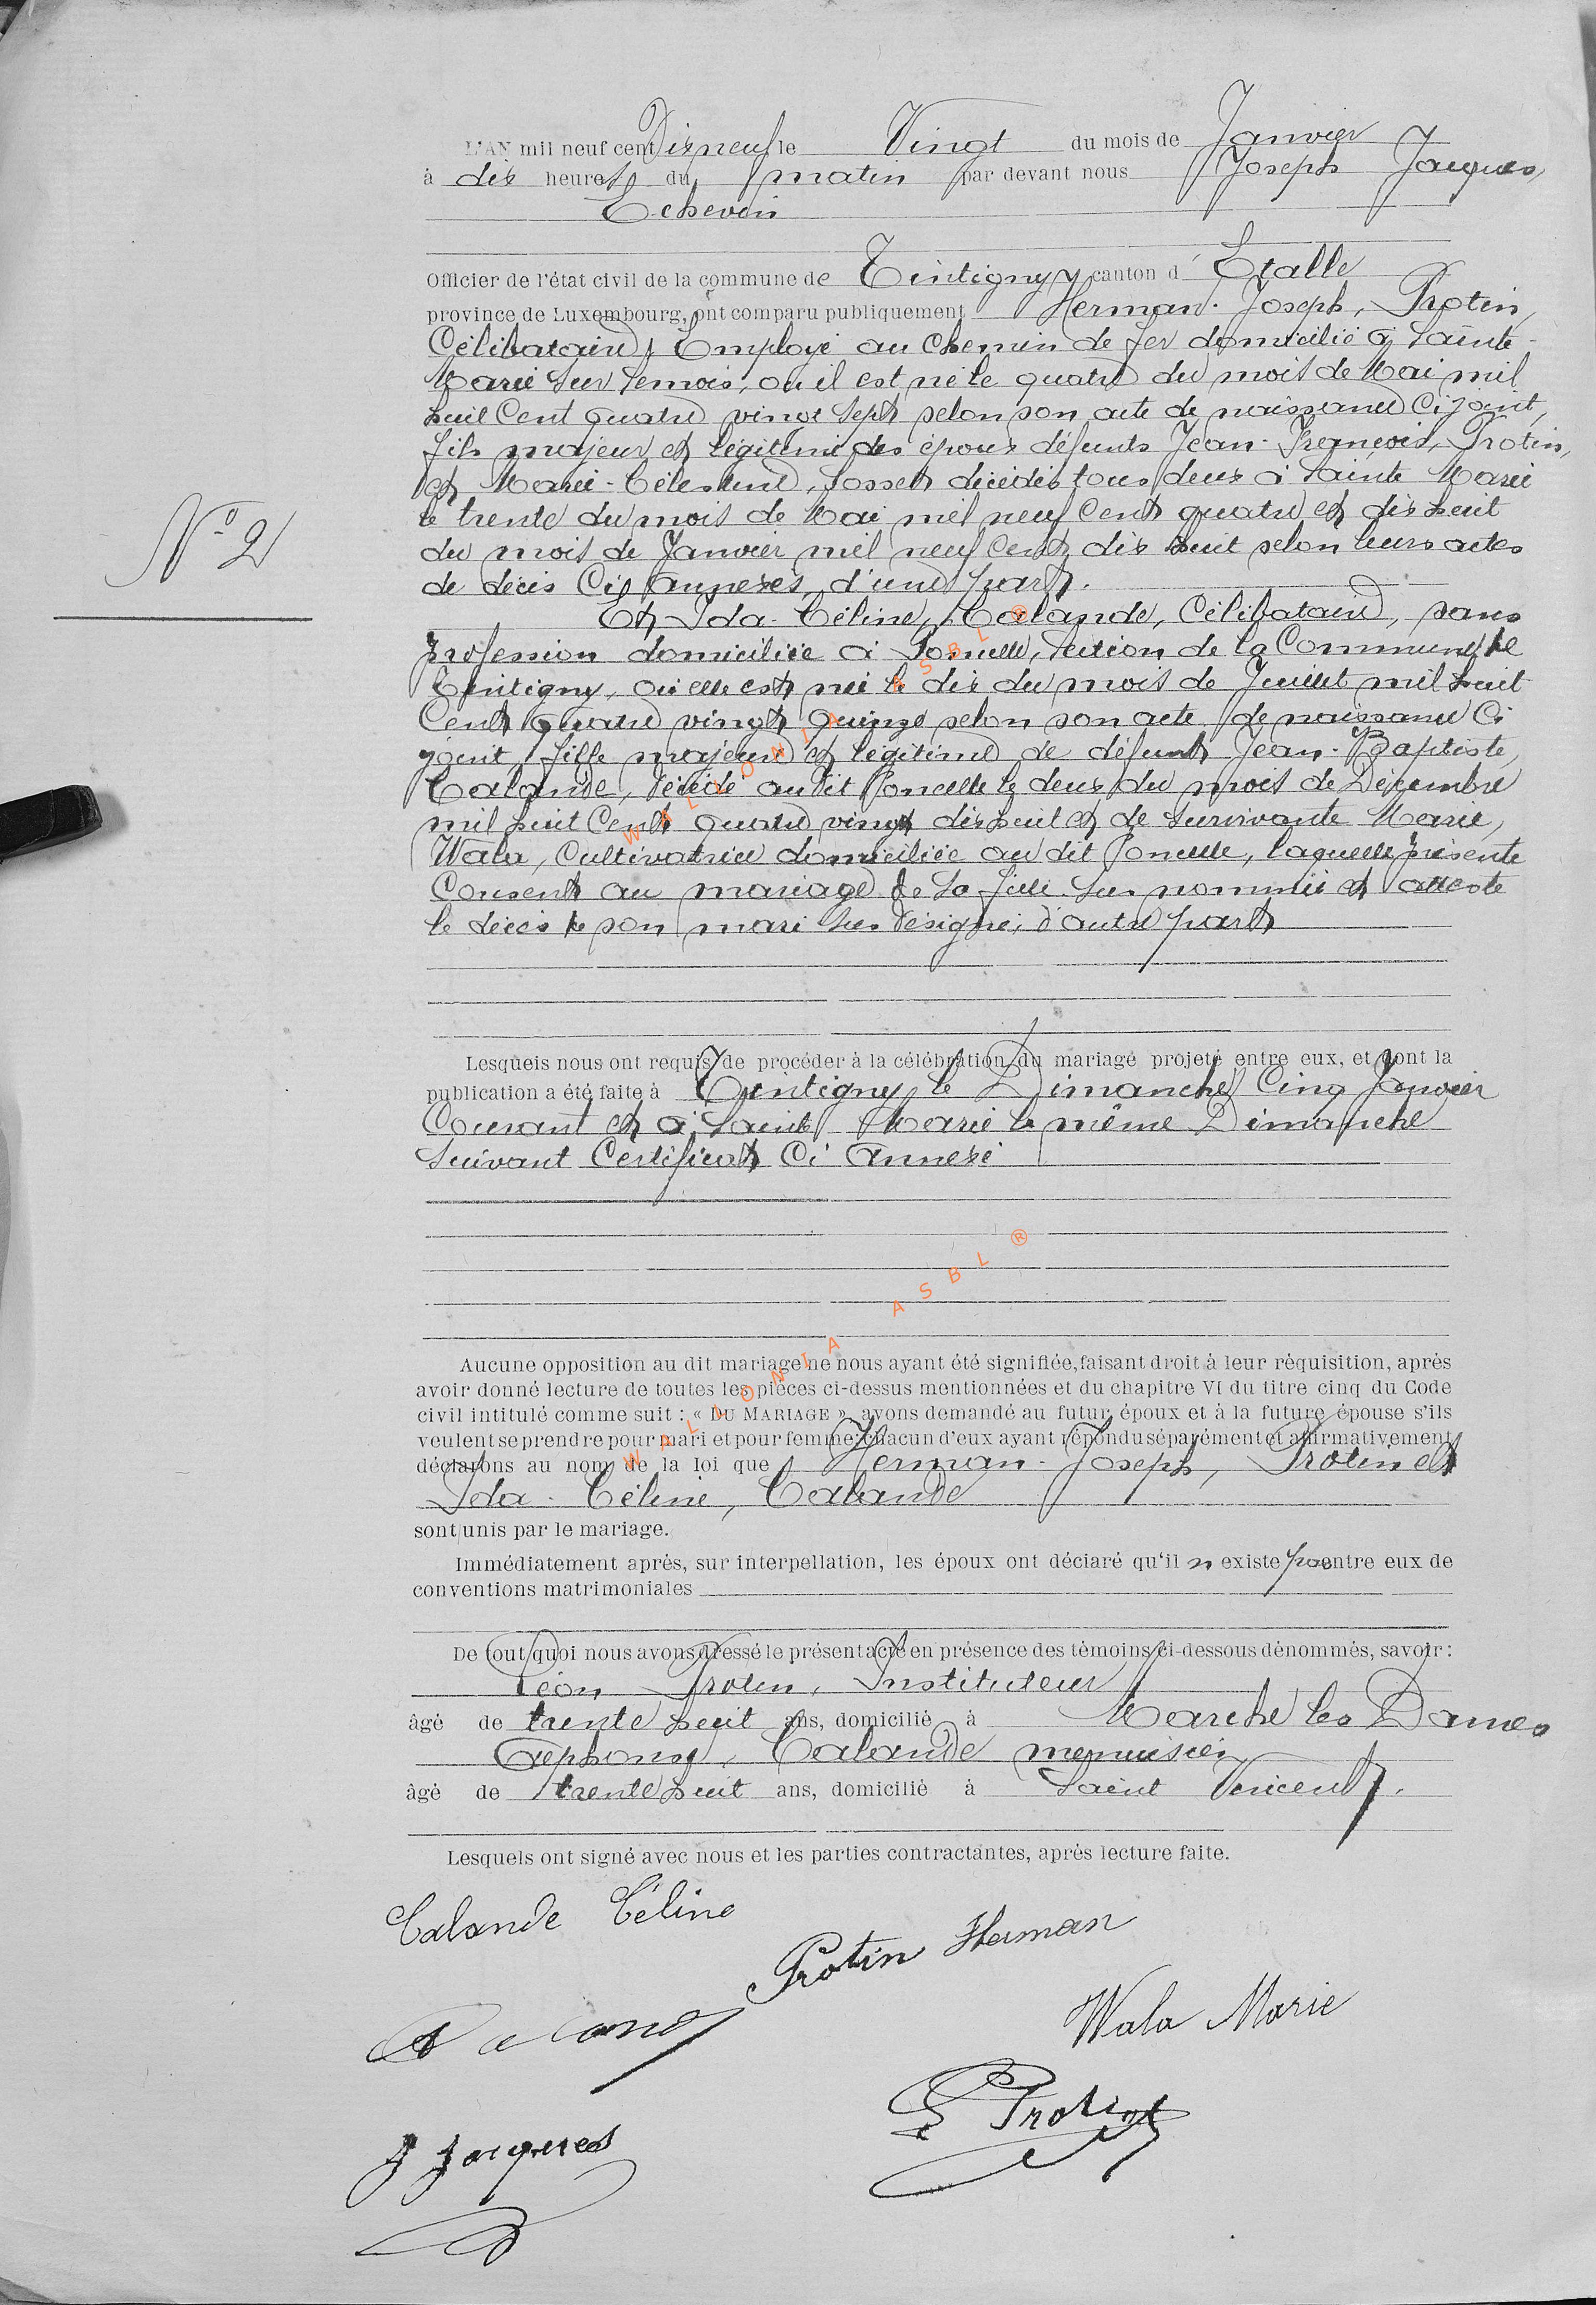 L'AN mil neuf cent Dixneuf le Vingt du mois de Janvier
à dix heures du matin par devant nous Joseph Jacques,
Echevin
Officier de l'état civil de la commune de Tintigny canton d'Etalle
province de Luxembourg, ont comparu publiquement Herman-Joseph, Protin,
Célibataire, Employé au chemin de fer domicilié à Sainte-
Marie sur Semois, où il est né le quatre du mois de Mai mil
huit Cent quatre vingt sept selon son acte de naissance Ci joint,
fils majeur et légitime des époux défunts Jean-François, Protin,
et Marie-Célestine, Fosset décédés tous deux à Sainte Marie
le trente du mois de Mai mil neuf Cent quatre et dix huit
du mois de Janvier mil neuf Cent dix huit selon leurs actes
de décès Ci annexés, d'une part.
Et Ida-Céline, Calande, Célibataire, sans
profession domiciliée à Poncelle, section de la Commune de
Tintigny, où elle est née le dix du mois de Juillet mil huit
Cent Quatre vingt quinze selon son acte de naissance Ci
joint, fille majeure et légitime de défunt Jean-Baptiste,
Calande, décédé au dit Poncelle le deux du mois de Décembre
mil huit Cent quatre vingt dix huit et de survivante Marie,
Wala, Cultivatrice domiciliée au dit Poncelle, laquelle présente
Consent au mariage de sa fille sus nommée et atteste
le décès de son mari sus désigné, d'autre part
Nº 2
Lesquels nous ont requis de procéder à la célébration du mariage projeté entre eux, et dont la
publication a été faite à Tintigny le Dimanche Cinq Janvier
Courant et à Sainte Marie le même Dimanche
suivant Certificat Ci annexé
Aucune opposition au dit mariage ne nous ayant été signifiée, faisant droit à leur réquisition, après
avoir donné lecture de toutes les pièces ci-dessus mentionnées et du chapitre VI du titre cinq du Code
civil intitulé comme suit : « DU MARIAGE », avons demandé au futur époux et à la future épouse s'ils
veulent se prendre pour mari et pour femme; chacun d'eux ayant répondu séparément et affirmativement
déclarons au nom de la loi que Herman-Joseph, Protin et
Ida-Céline, Calande
sont unis par le mariage.
Immédiatement après, sur interpellation, les époux ont déclaré qu'il n existe pas entre eux de
conventions matrimoniales
De tout quoi nous avons dressé le présent acte en présence des témoins ci-dessous dénommés, savoir :
Léon Protin, Instituteur
âgé de trente huit ans, domicilié à Marche les Dames
Alphonse, Calande menuisier
âgé de trente huit ans, domicilié à Saint Vincent.
Lesquels ont signé avec nous et les parties contractantes, après lecture faite.
Calande Céline
Protin Herman
Wala Marie
L Protin
J Jacques
WALLONIA ASBL ®
WALLONIA ASBL ®